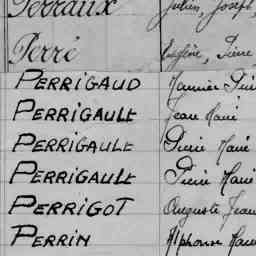 Perraux Julien, Joseph,
Perré Eugène, Pierre
PERRIGAUD Maurice
PERRIGAULT Jean Marie
PERRIGAULT Pierre Marie
PERRIGAULT Pierre Marie
PERRIGOT Auguste, Jean
PERRIN Alphonse